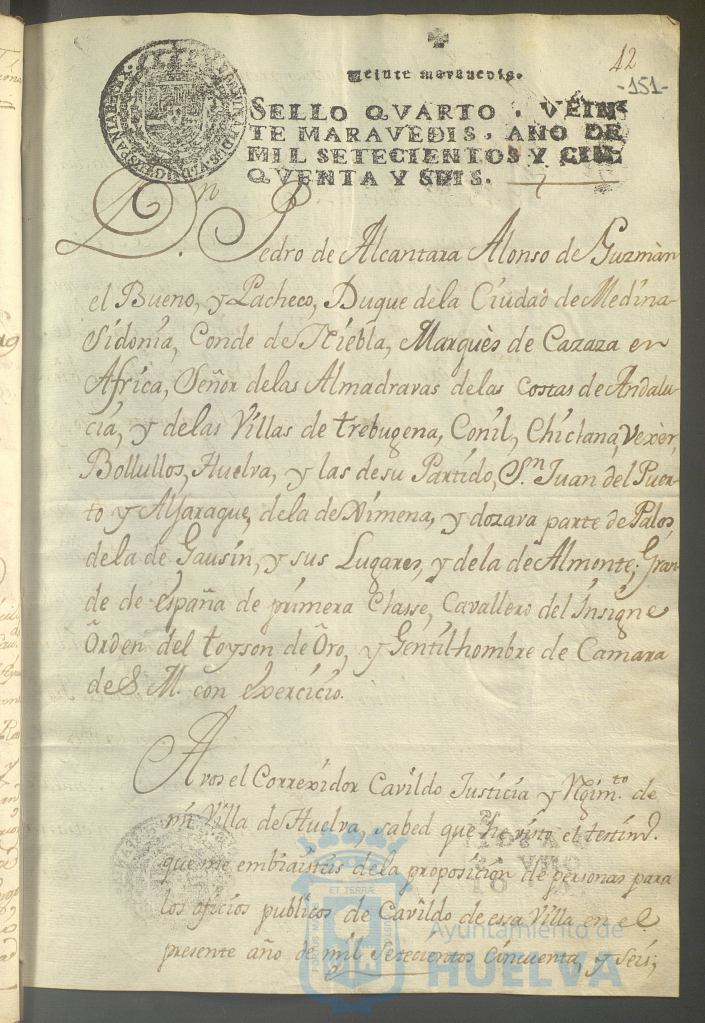 42
-151-
Veinte maravedis.
SELLO QVARTO, VEIN
TE MARAVEDIS, AÑO DE
MIL SETECIENTOS Y CIN
QVENTA Y SEIS.
Dn. Pedro de Alcantara Alonso de Guzmàn
el Bueno, y Pacheco, Duque dela Ciudad de Medina-
Sidonia, Conde de Niebla, Marquès de Cazaza en
Africa, Señor delas Almadravas delas costas de Andalu-
cia, y delas Villas de trebugena, Conil, Chiclana, Vexèr,
Bollullos, Huelva, y las desu Partido, Sn. Juan del Puer-
to y Aljaraque, dela de Ximena, y dozava parte de Palos,
dela de Gausin, y sus Lugares, y dela de Almonte; Gran-
de de españa de primera Classe, Cavallero del Insigne
Orden del toyson de Oro, y Gentilhombre de Camara
de S. M. con exercicio.
A vos el Correxidor Cavildo Justicia y Rgimto. de
mi Villa de Huelva, sabed que he visto el testimo.
que me embiaisteis dela proposicion de personas para
los oficios publicos de Cavildo de essa Villa en el
presente año de mil Setecientos Cincuenta, y seis;
Ayuntamiento de
HUELVA